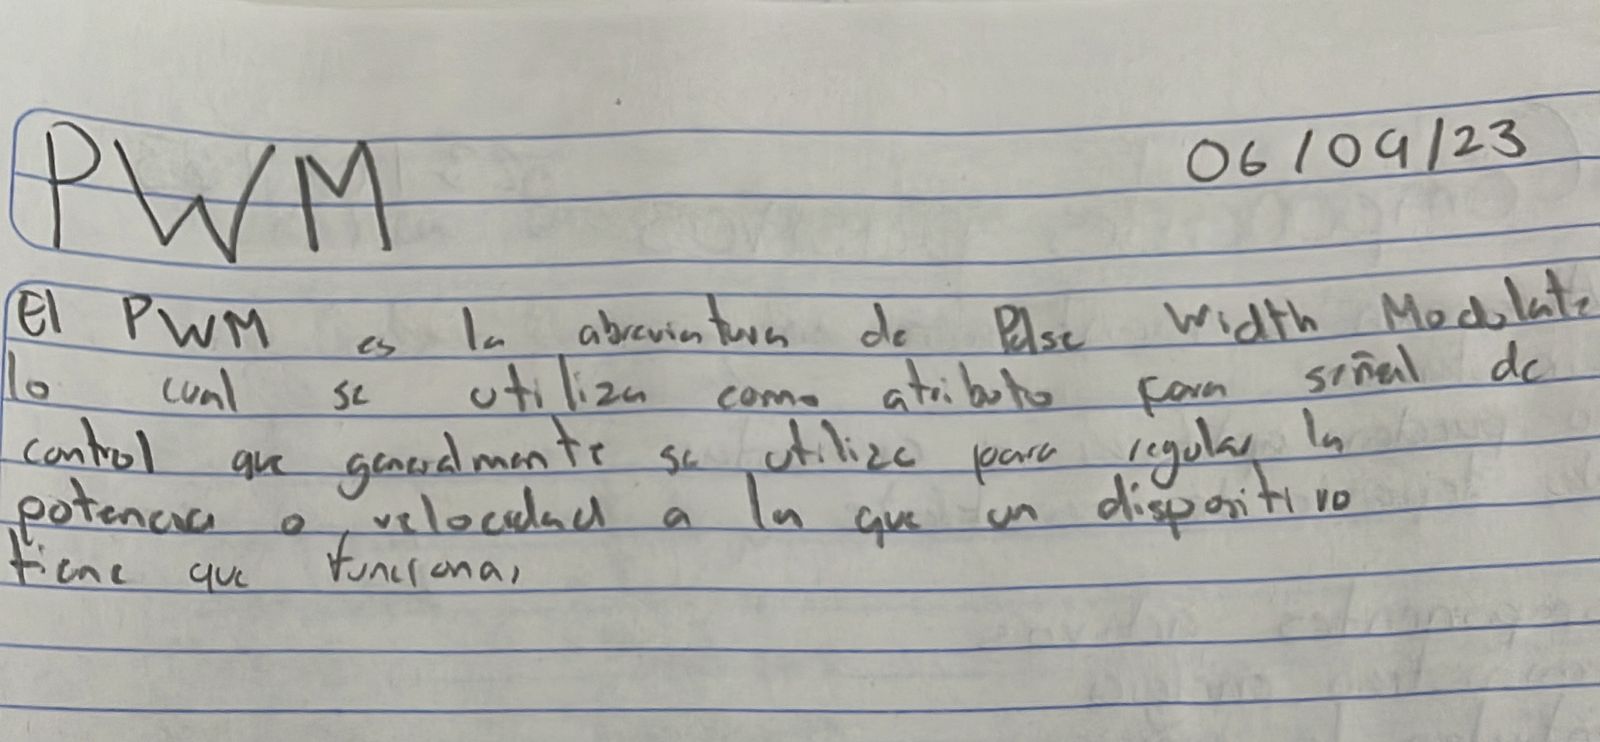 PWM 06/09/23
El PWM es la abreviatura de Pulse Width Modulate
lo cual se utiliza como atributo para señal de
control que generalmente se utiliza para regular la
potencia o velocidad a la que un dispositivo
tiene que funcionar